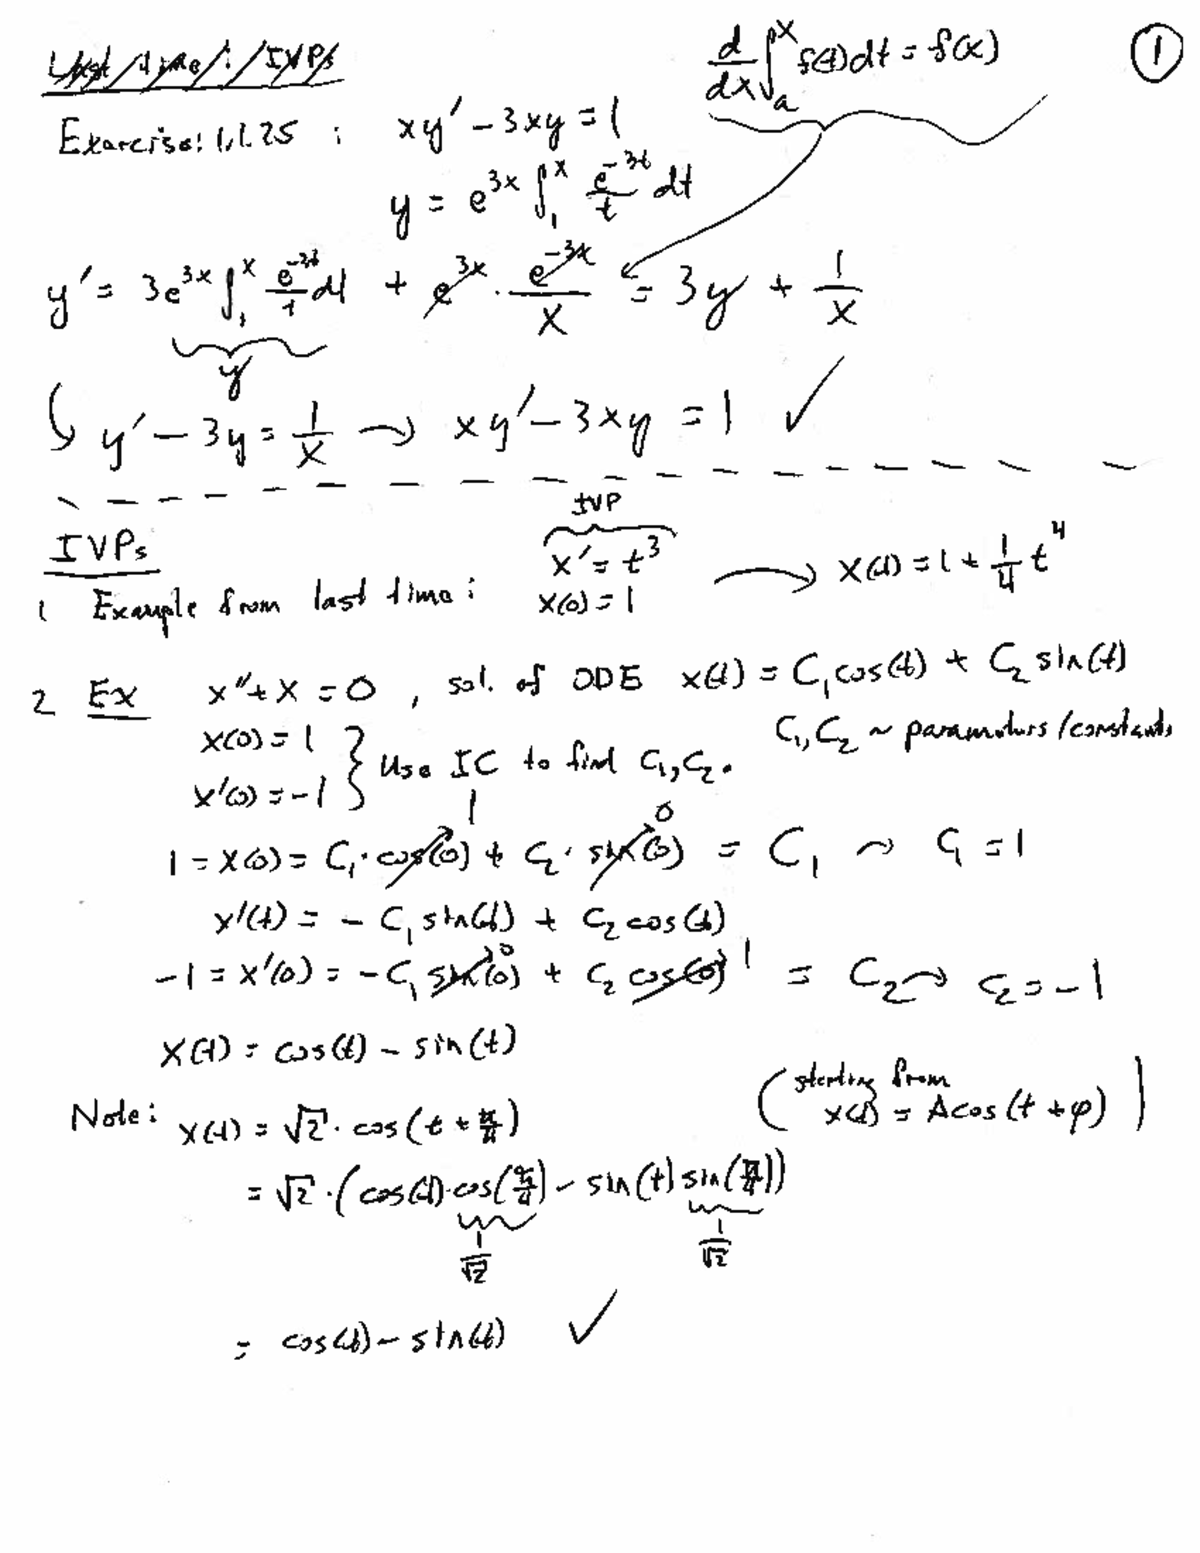 Last time: IVPs
d/dx ∫_a^x f(t)dt = f(x)
1
Exercise: 1.1.25 : xy' - 3xy = 1
y = e^{3x} ∫_1^x e^{-3t}/t dt
y' = 3e^{3x} ∫_1^x e^{-3t}/t dt + e^{3x} · e^{-3x}/x = 3y + 1/x
y
↳ y' - 3y = 1/x → xy' - 3xy = 1 ✓
IVP
IVPs
1 Example from last time: x' = t^3 → x(t) = 1 + 1/4 t^4
x(0) = 1
2 Ex x'' + x = 0, sol. of ODE x(t) = C_1 cos(t) + C_2 sin(t)
x(0) = 1
C_1, C_2 ~ parameters/constants
x'(0) = -1 } Use IC to find C_1, C_2.
1 0
1 = x(0) = C_1 · cos(0) + C_2 · sin(0) = C_1 ⤳ C_1 = 1
x'(t) = - C_1 sin(t) + C_2 cos(t)
0 1
-1 = x'(0) = -C_1 sin(0) + C_2 cos(0) = C_2 ⤳ C_2 = -1
x(t) = cos(t) - sin(t)
(starting from
x(t) = A cos(t + φ))
Note: x(t) = √2 · cos(t + π/4)
= √2 · (cos(t) · cos(π/4) - sin(t) sin(π/4))
1/√2 1/√2
= cos(t) - sin(t) ✓